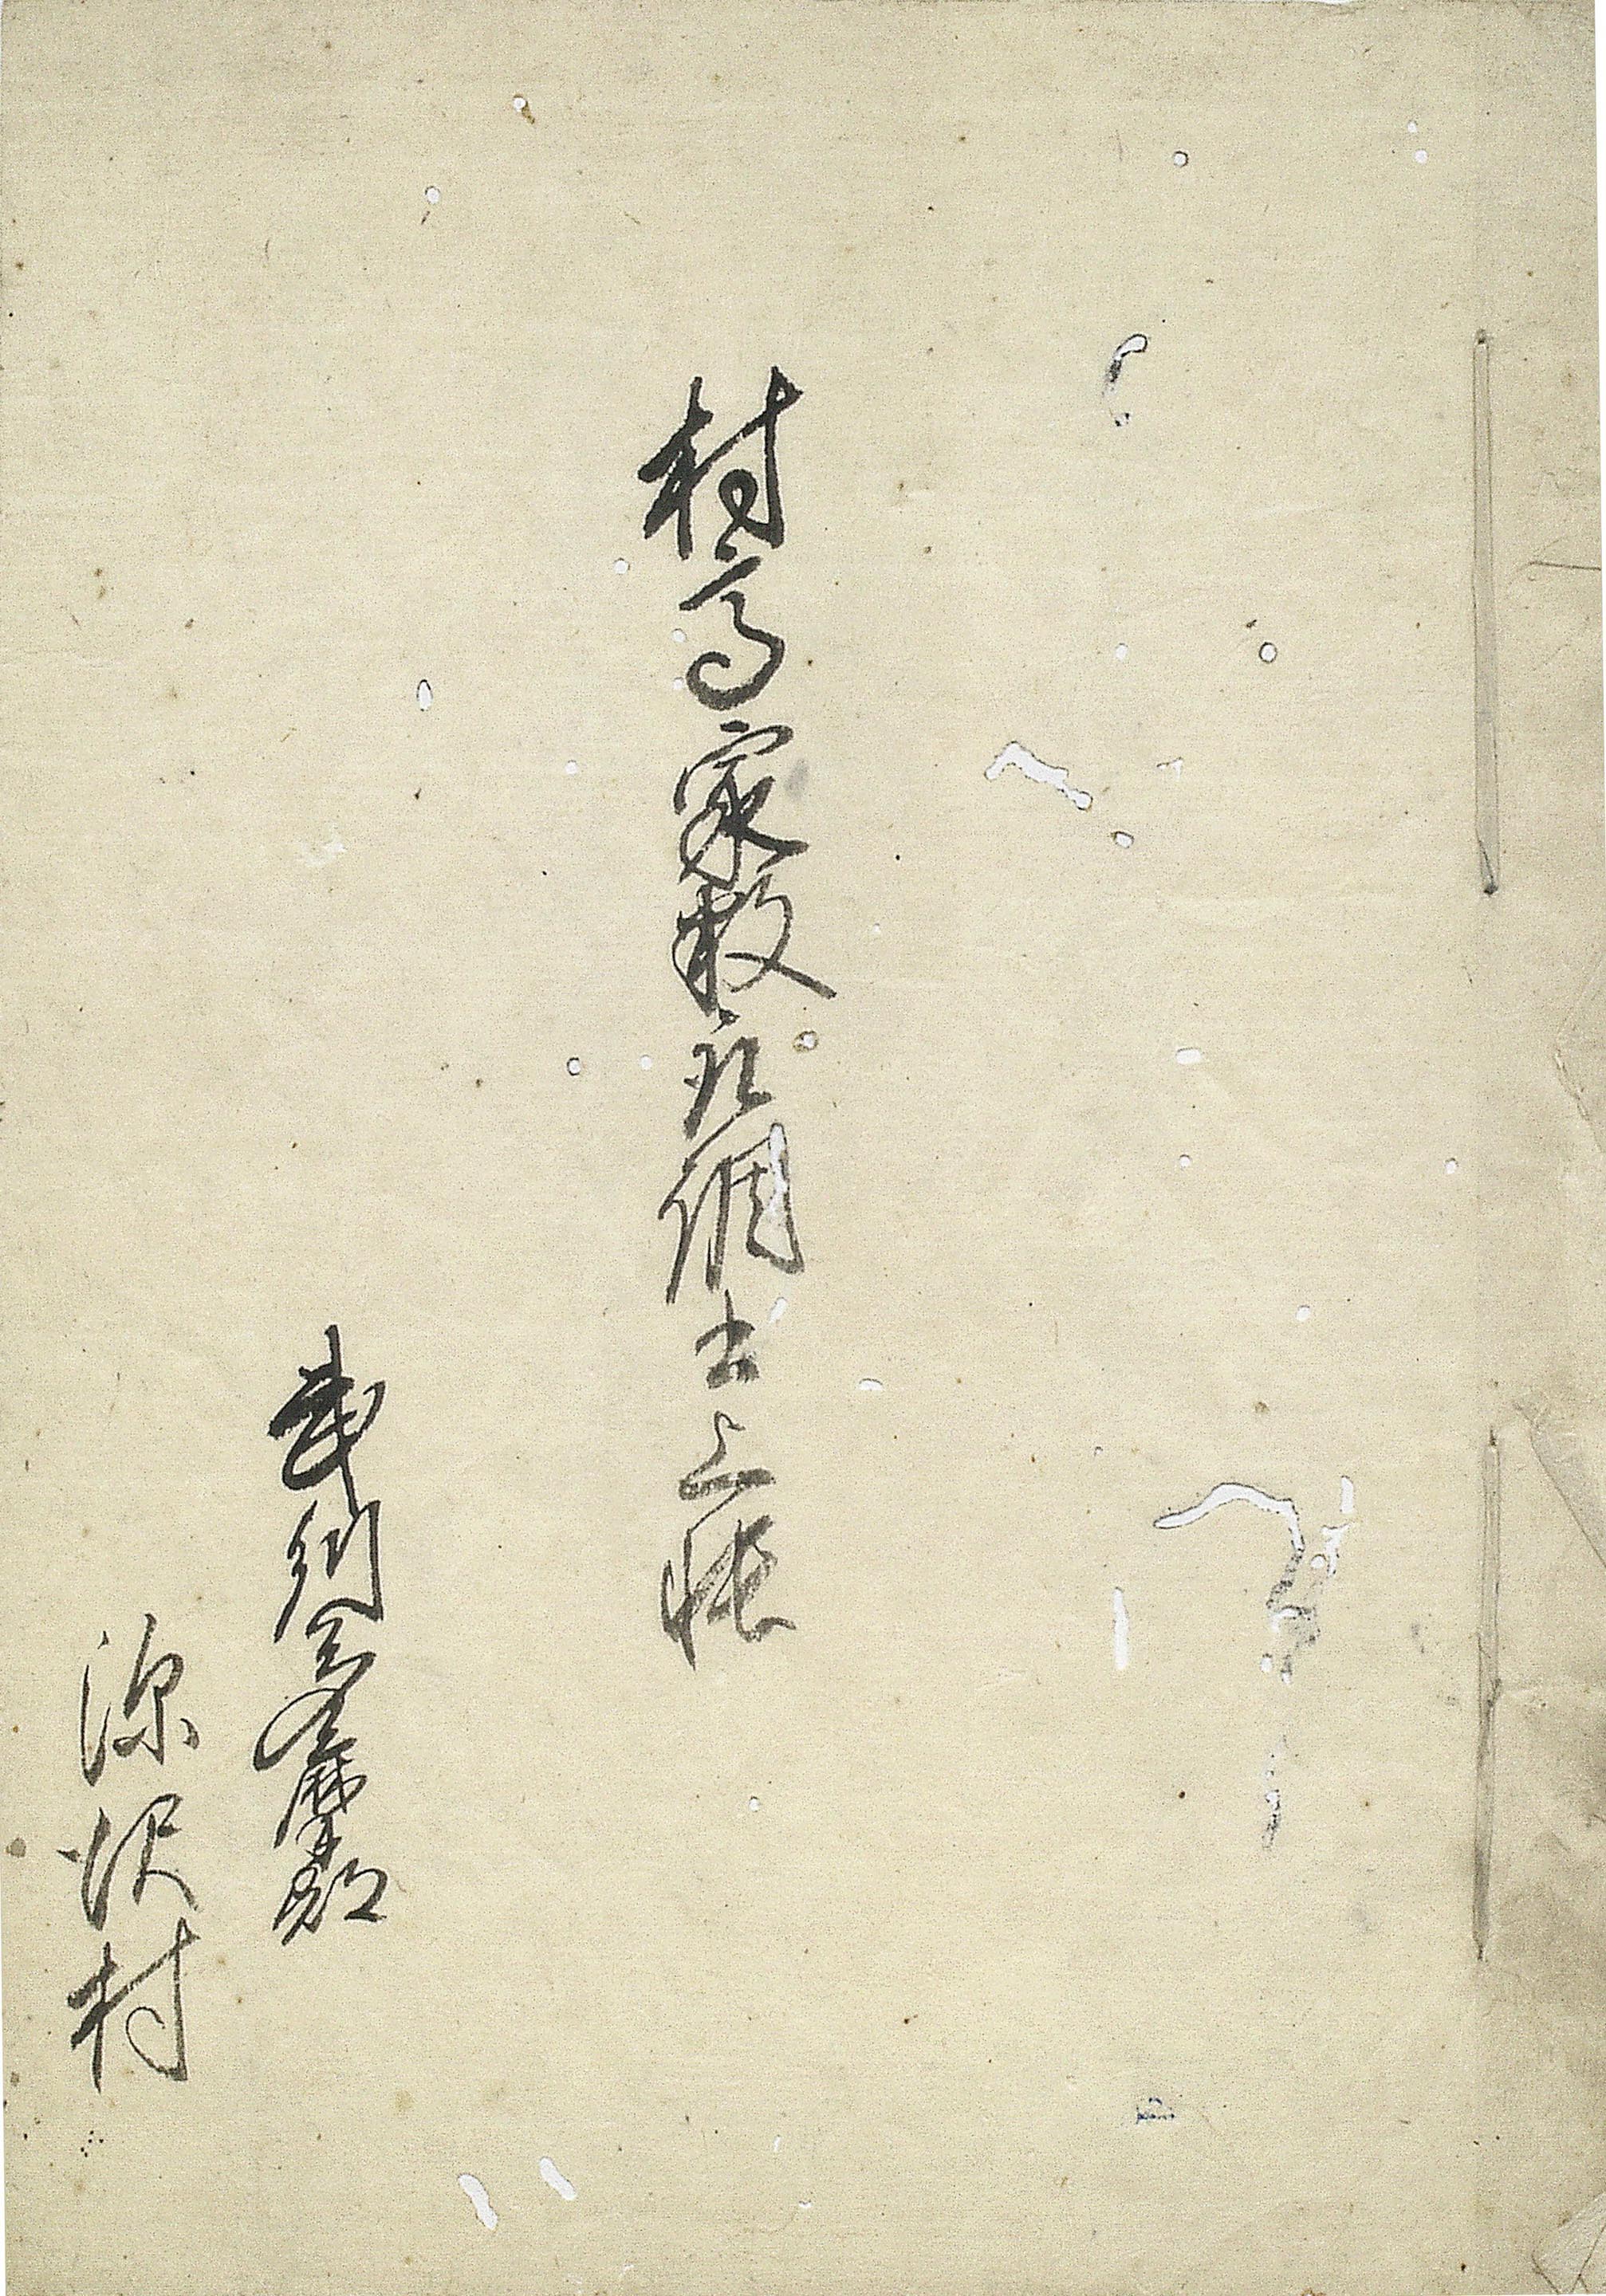 村高家数取調書上帳
武州多摩郡
深沢村